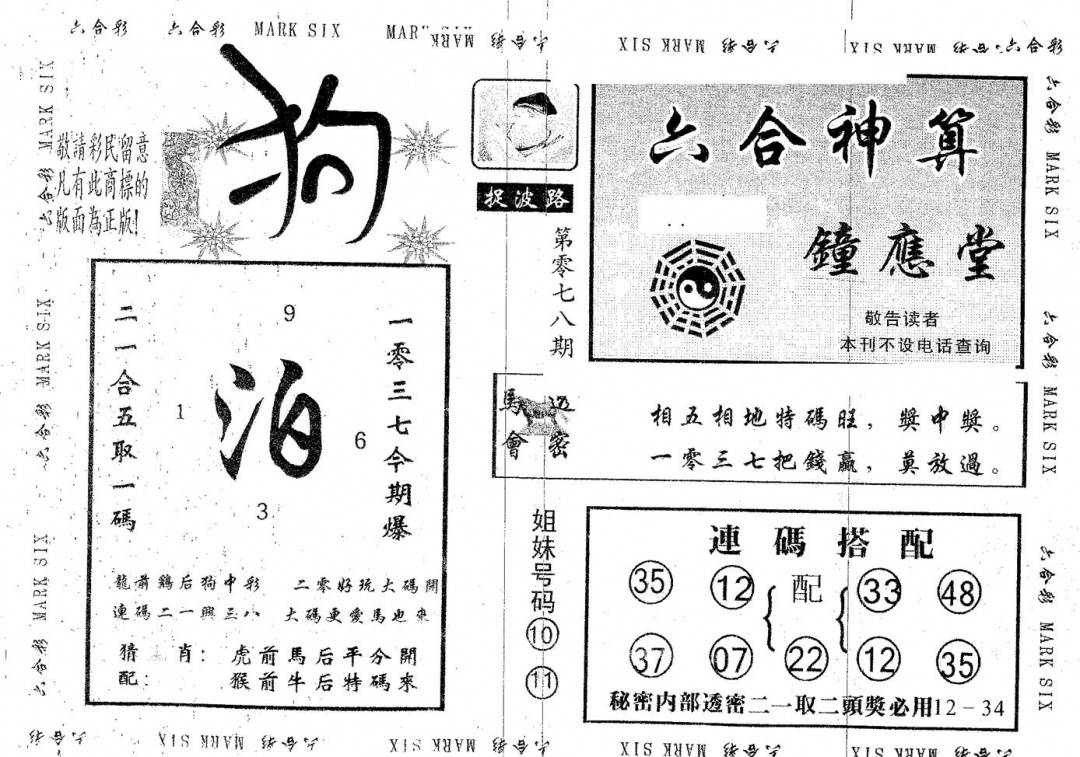 六合彩 六合彩 MARK SIX MARK SIX 六合彩 MARK SIX 六合彩 MARK SIX 六合彩
敬請彩民留意
凡有此商標的
版面為正版!
狗
捉波路
第零七八期
六合神算
鐘應堂
敬告读者
本刊不设电话查询
二一合五取一碼
9
1
泊
6
3
一零三七今期爆
龍前鷄后狗中彩 二零好玩大碼開
連碼二一興三八 大碼更愛馬也來
猜肖: 虎前馬后平分開
配: 猴前牛后特碼來
馬會
透密
相五相地特碼旺,獎中獎。
一零三七把錢贏,莫放過。
姐妹号码
10
11
連碼搭配
35 12 配 33 48
37 07 22 12 35
秘密内部透密二一取二頭獎必用12-34
六合彩 MARK SIX 六合彩 MARK SIX 六合彩 MARK SIX 六合彩
六合彩 MARK SIX 六合彩 MARK SIX 六合彩 MARK SIX
六合彩 MARK SIX 六合彩 MARK SIX 六合彩 MARK SIX 六合彩 MARK SIX 六合彩